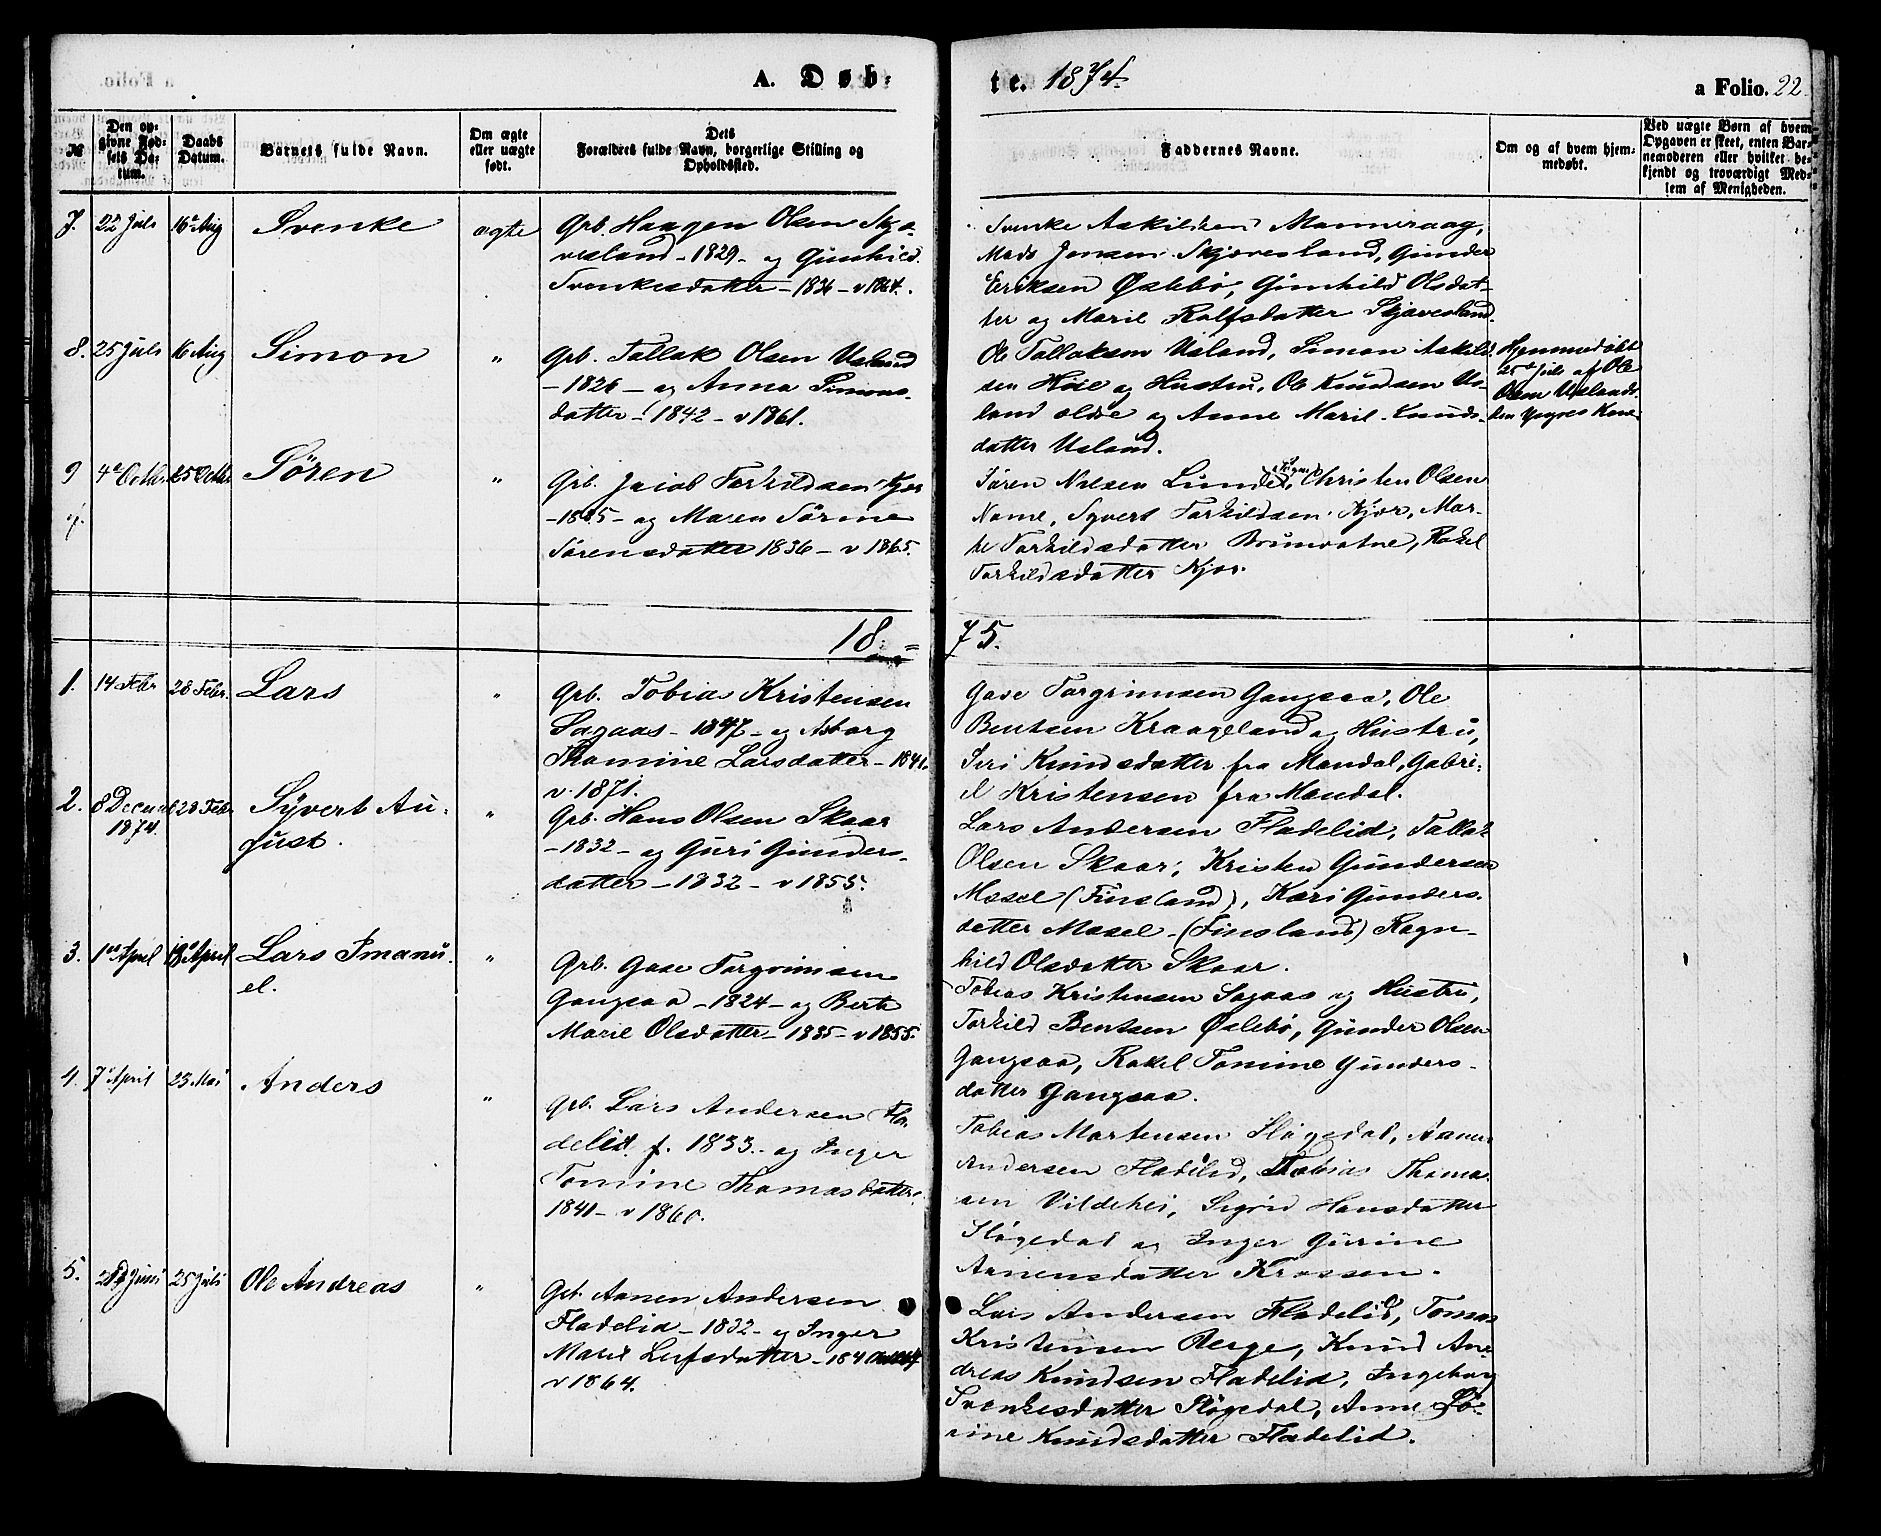 A. Døb-
te. 1874.
a Folio. 22
№
Den op-
givne Fød-
sels Da-
tum.
Daabs
Datum.
Barnets fulde Navn.
Om ægte
eller uægte
født.
Dets
Forældres fulde Navn, borgerlige Stilling og
Opholdssted.
Faddernes Navne.
Om og af hvem hjem-
medøbt.
Ved uægte Børn af hvem
Opgaven er skeet, enten Bar-
nemoderen eller hvilket be-
kjendt og troværdigt Med-
lem af Menigheden.
7. 22 Juli 16 Aug Svenke ægte
Grb. Haagen Olsen Skjæ-
vesland - 1829 - og Gunhild
Svenkesdatter - 1836 - v 1864.
Svenke Askildsen Manneraag,
Mads Jensen Skjævesland, Gunder
Eriksen Øslebø, Gunhild Olsdat-
ter og Marie Rolfsdatter Skjævesland.
8. 25 Juli 16 Aug Simon "
Grb. Tallak Olsen Usland
- 1826 - og Anna Simons-
datter - 1842 - v 1861.
Ole Tallaksen Usland, Simon Askild-
sen Høie og Hustru, Ole Knudsen Us-
land ældre og Anne Marie Knuds-
datter Usland.
Hjemmedøbt
25 Juli af Ole
Olsen Uslands
den yngres Kone
9 4 Octbr 25 Octbr Søren "
Grb. Jacob Torkildsen Kjær
- 1835 - og Maren Sørine
Sørensdatter 1836 - v 1865.
Søren Nilsen Lunde, Christen Olsen
Nome, Syvert Torkildsen Kjær, Mar-
the Torkildsdatter Brunvatne, Rakel
Torkildsdatter Kjær.
18 = 75.
1. 14 Febr 28 Febr. Lars "
Grb. Tobias Kristensen
Sagaas - 1847 - og Asborg
Thomine Larsdatter - 1841.
v. 1871.
Gase Torgrimsen Gangsaa, Ole
Bentsen Kraageland og Hustru,
Siri Knudsdatter fra Mandal, Gabri-
el Kristensen fra Mandal.
2. 8 Decembr 28 Febr Syvert Au-
1874. gust. "
Grb. Hans Olsen Skaar
- 1832 - og Guri Gunders-
datter - 1832 - v 1855.
Lars Andersen Fladelid, Tallak
Olsen Skaar, Kristen Gundersen
Mæsel (Finsland), Kari Gunders-
datter Mæsel - (Finsland) Ragn-
hild Olsdatter Skaar.
3. 1 April 18 April Lars Imanu-
el. "
Grb. Gase Torgrimsen
Gangsaa - 1824 - og Berte
Marie Olsdatter - 1835 - v 1855.
Tobias Kristensen Sagaas og Hustru,
Torkild Bentsen Øslebø, Gunder Olsen
Gangsaa, Rakel Tomine Gunders-
datter Gangsaa.
4. 7 April 23 Mai Anders "
Grb. Lars Andersen Fla-
delid f. 1833. og Inger
Tomine Thomasdatter
1841 - v 1860.
Tobias Martensen Sløgedal, Aanen
Andersen Fladelid, Tobias Thomas-
sen Vildehei, Sigrid Hansdatter
Sløgedal og Inger Gurine
Aanensdatter Krossen.
5. 22 Juni 25 Juli Ole Andreas "
Grb. Aanen Andersen
Fladelid - 1832 - og Inger
Marie Leifsdatter - 184
v 1864.
Lars Andersen Fladelid, Tomas
Kristensen Berge, Knud An-
dreas Knudsen Fladelid, Ingeborg
Svenkesdatter Sløgedal, Anne Sø-
rine Knudsdatter Fladelid.